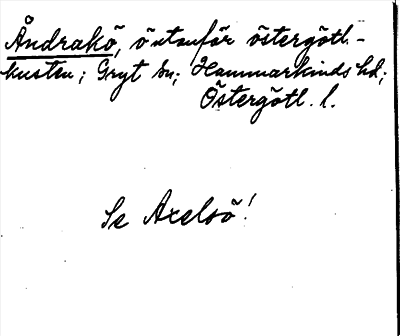 Åndrakö, ö utanför östergötl.-
kusten; Gryt sn; Hammarkinds hd;
Östergötl. l.
Se Axelsö!